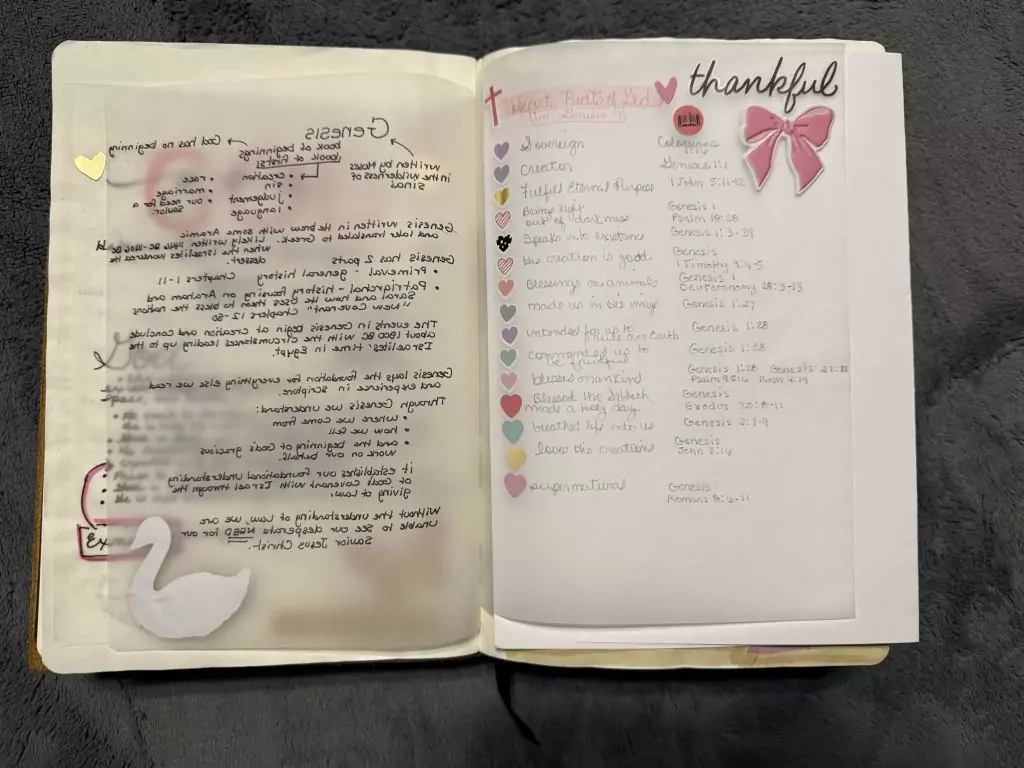 Genesis
God has no beginning
book of beginnings
book of firsts!
written by Moses
in the wilderness of
Sinai
• creation
• sin
• Judgement
• language
• race
• marriage
• our need for a
Savior.
Genesis written in Hebrew with some Aramaic
and later translated to Greek. Likely written 1446 BC-1406 BC
when the Israelites wandered the
dessert.
Genesis has 2 parts
• Primeval - general history Chapters 1-11
• Patriarchal - history focusing on Abraham and
Sarai and how He uses them to bless the nations
"New Covenant" Chapters 12-50
The events in Genesis begin at creation and conclude
about 1800 BC with the circumstances leading up to the
Israelites' time in Egypt.
Genesis lays the foundation for everything else we read
and experience in Scripture.
Through Genesis we understand:
• where we come from
• how we fell
• and the beginning of God's gracious
work on our behalf.
it establishes our foundational understanding
of God's Covenant with Israel through the
giving of Law.
Without the understanding of Law, we are
unable to see our desperate NEED for our
Savior Jesus Christ.
Ex
thankful
Heart of God
in Genesis
Sovereign Colossians
1:16
Creator Genesis 1:1
Fulfill Eternal Purpose 1 John 5:11-12
Brings light Genesis 1
out of darkness Psalm 18:28
Speaks into existence Genesis 1:3-29
His creation is good Genesis
1 Timothy 4:4-5
Blessings on animals Genesis 1
Deuteronomy 28:3-13
made us in His image Genesis 1:27
intended for us to rule over Earth Genesis 1:28
commanded us to be fruitful Genesis 1:28
blesses mankind Genesis 1:28 Genesis 27:
Psalm
Blessed the Sabbath Genesis
made a Holy day. Exodus 20:8-11
breathed life into us Genesis 2:7-9
loves His creations Genesis
John 3:16
supernatural Genesis
Romans 8:6-11